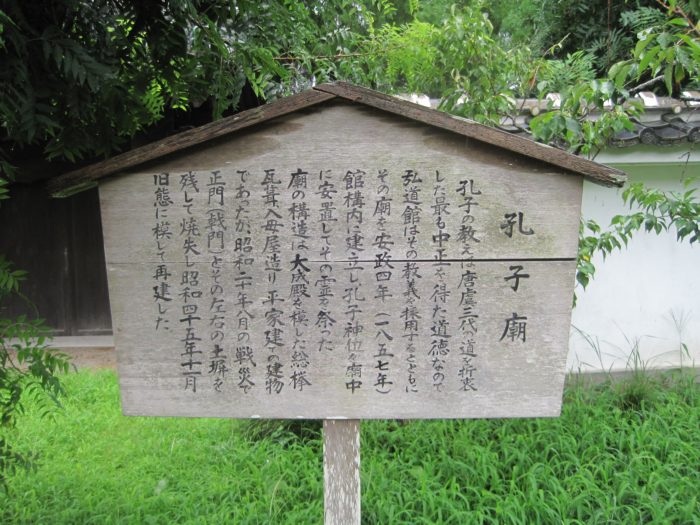 孔子廟
孔子の教えは唐虞三代の道を折衷
した最も中正を得た道徳なので
弘道館はその教義を採用するとともに
その廟を安政四年(一八五七年)
館構内に建立し孔子神位を廟中
に安置してその霊を祭った
廟の構造は大成殿を模した総欅
瓦葺入母屋造り平家建の建物
であったが昭和二十年八月の戦災で
正門(戟門)とその左右の土塀を
残して焼失し昭和四十五年十一月
旧態に模して再建した